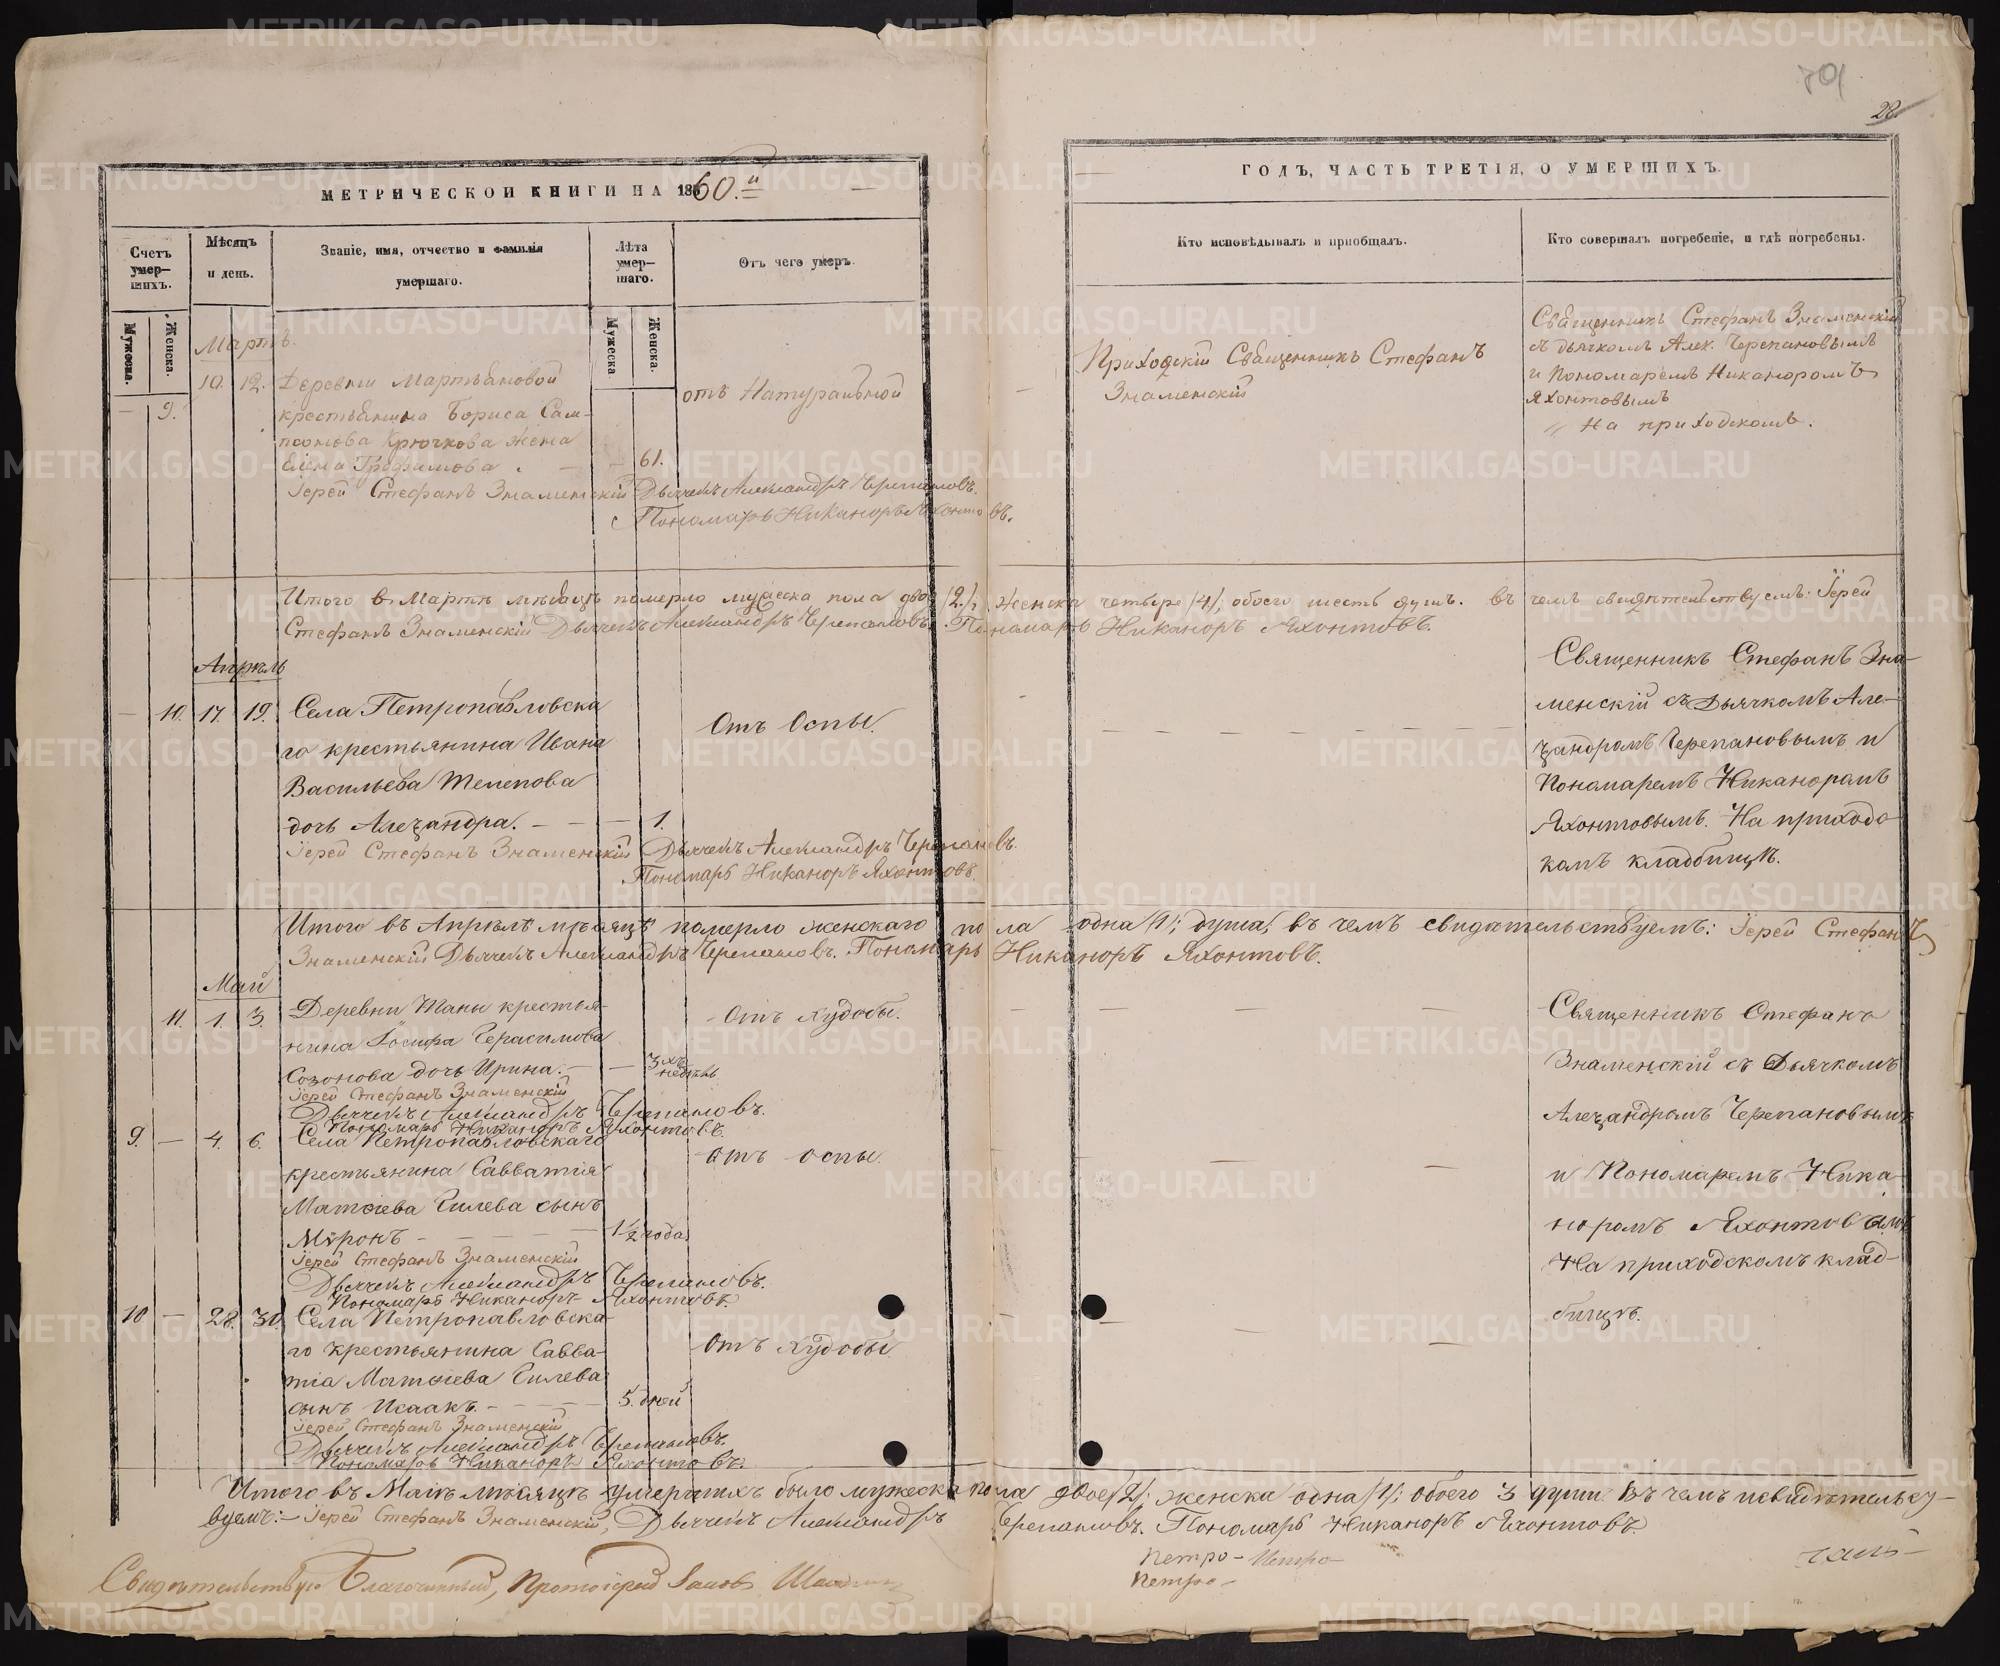 701
28.
МЕТРИЧЕСКОЙ КНИГИ НА 1860.й
ГОДЪ, ЧАСТЬ ТРЕТІЯ, О УМЕРШИХЪ.
Счетъ умер-шихъ.
Мѣсяцъ и день.
Званіе, имя, отчество и фамилія умершаго.
Лѣта умер-шаго.
Отъ чего умеръ.
Кто исповѣдывалъ и пріобщалъ.
Кто совершалъ погребеніе, и гдѣ погребены.
Мужеска.
Женска.
Мужеска
Женска.
Мартъ.
9. 10. 12. Деревни Мартьяновой
крестьянина Бориса Сам-
псонова Крючкова жена
Елена Трофимова. 61.
отъ Натуральной
Іерей Стефанъ Знаменскій Дьячекъ Александръ Черепановъ.
Пономарь Никаноръ Яхонтовъ.
Приходскій Священникъ Стефанъ
Знаменскій
Священникъ Стефанъ Знаменскій
съ дьячкомъ Алек. Черепановымъ
и Пономаремъ Никаноромъ
Яхонтовымъ
На приходскомъ.
Итого в Мартѣ мѣсяцѣ померло мужеска пола двое /2/, женска четыре /4/, обоего шесть душъ. въ чемъ свидѣтельствуемъ: Іерей
Стефанъ Знаменскій Дьячекъ Александръ Черепановъ. Пономарь Никаноръ Яхонтовъ.
Апрѣль
10. 17. 19. Села Петропавловска
го крестьянина Ивана
Васильева Телепова
дочь Алеѯандра. 1.
Отъ Оспы.
Іерей Стефанъ Знаменскій Дьячекъ Александръ Черепановъ.
Пономарь Никаноръ Яхонтовъ.
Священникъ Стефанъ Зна-
менскій съ Дьячкомъ Але-
ѯандромъ Черепановымъ и
Пономаремъ Никаноромъ
Яхонтовымъ. На приходс
комъ кладбищѣ.
Итого въ Апрѣлѣ мѣсяцѣ померло женскаго пола одна /1/; душа, въ чемъ свидѣтельствуемъ: Іерей Стефанъ
Знаменскій Дьячекъ Александръ Черепановъ. Пономарь Никаноръ Яхонтовъ.
Май
11. 1. 3. Деревни Таны крестья-
нина Іосифа Герасимова
Созонова дочь Ирина. 3хъ недѣль
Отъ худобы.
Іерей Стефанъ Знаменскій
Дьячекъ Александръ Черепановъ.
Пономарь Никаноръ Яхонтовъ.
9. 4. 6. Села Петропавловскаго
крестьянина Савватія
Матѳіева Гилева сынъ
Мѵронъ 1½ года
Отъ оспы.
Іерей Стефанъ Знаменскій
Дьячекъ Александръ Черепановъ.
Пономарь Никаноръ Яхонтовъ.
10 28. 30. Села Петропавловска-
го крестьянина Савва-
тіа Матѳіева Гилева
сынъ Исаакъ. 5 дней
Отъ худобы
Іерей Стефанъ Знаменскій
Дьячекъ Александръ Черепановъ.
Пономарь Никаноръ Яхонтовъ.
Священникъ Стефанъ
Знаменскій съ Дьячкомъ
Алеѯандромъ Черепановымъ
и Пономаремъ Ника-
норомъ Яхонтовымъ
На приходскомъ клад-
бищѣ.
Итого въ Маіѣ мѣсяцѣ умершихъ было мужеска пола двое /2/; женска одна /1/; обоего 3 души Въ чемъ и свидѣтельст
вуемъ:- Іерей Стефанъ Знаменскій, Дьячекъ Александръ Черепановъ. Пономарь Никаноръ Яхонтовъ
Петро- Петро-
Петро-
Свидѣтельствую Благочинный, Протоіерей
METRIKI.GASO-URAL.RU